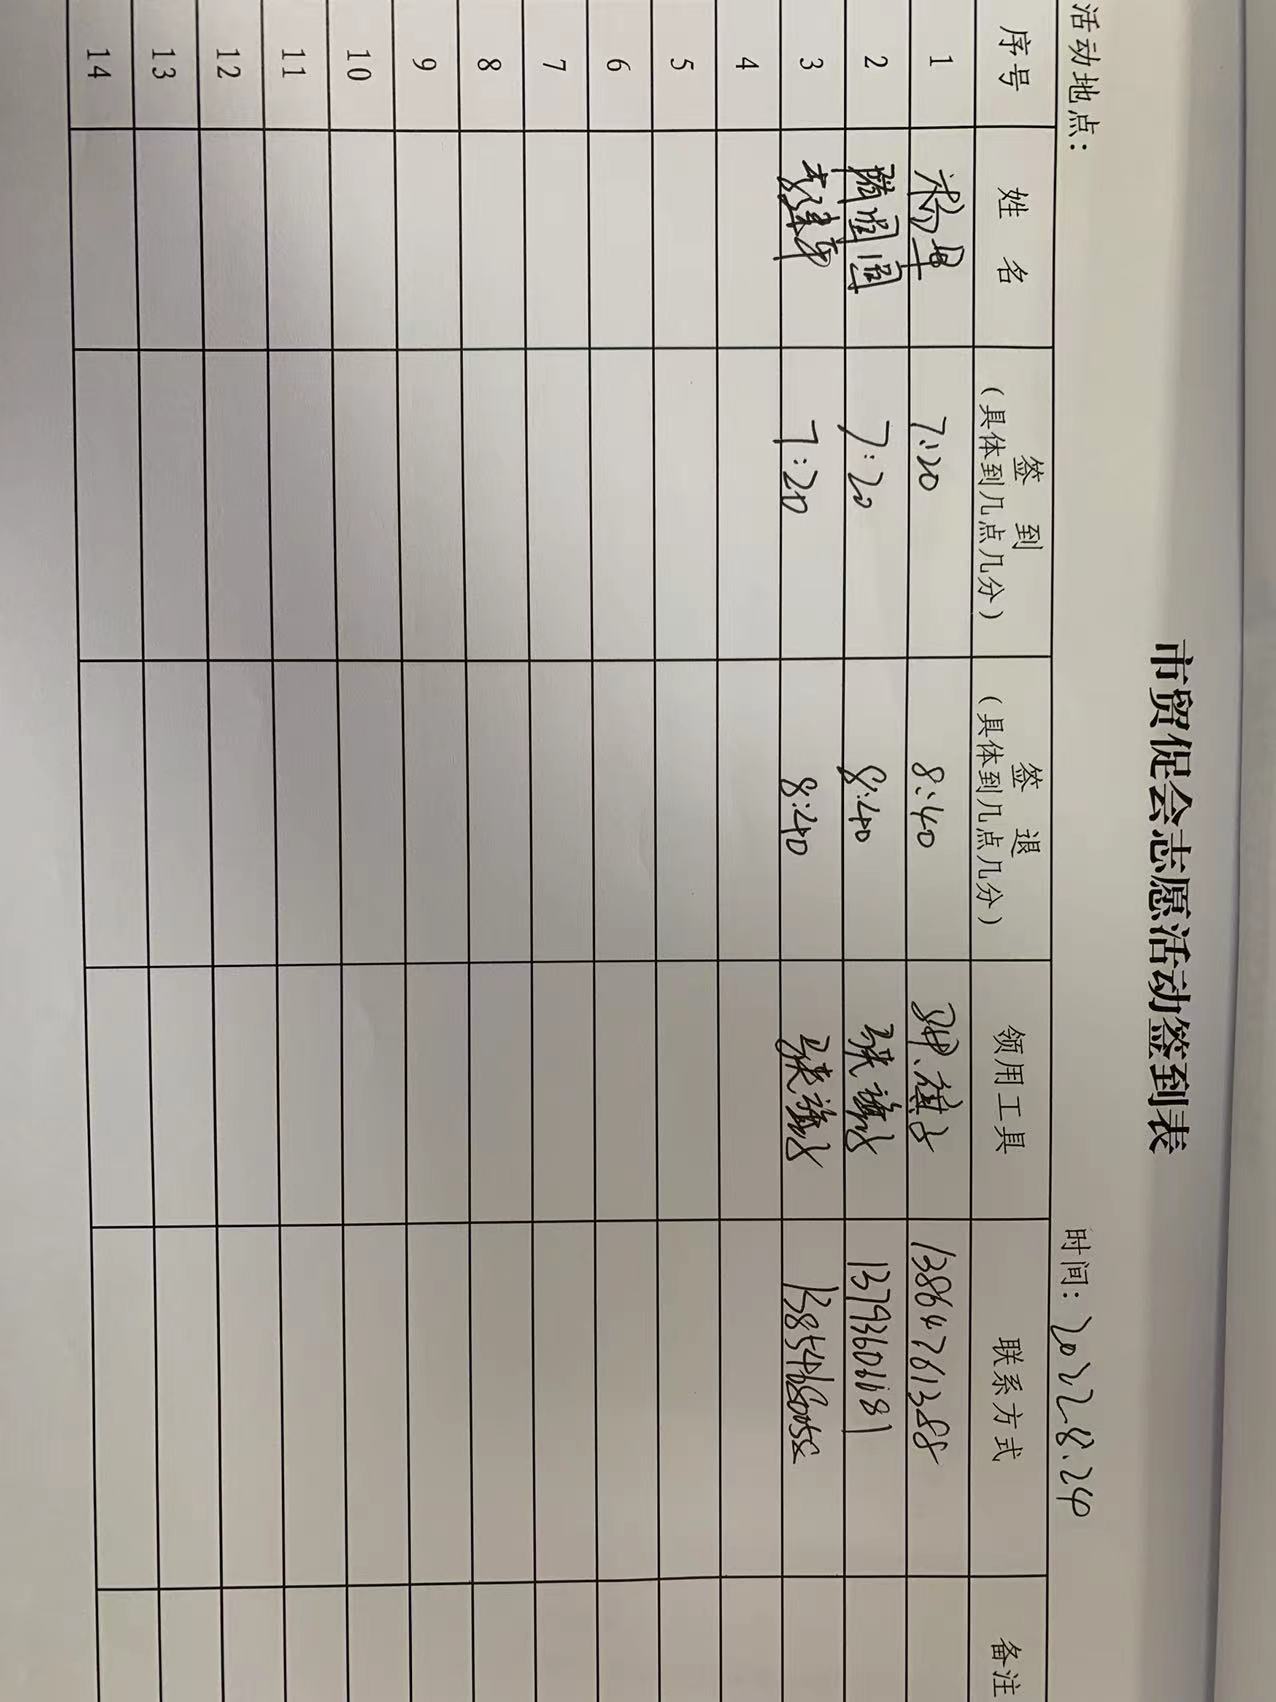 市贸促会志愿活动签到表
活动地点： 时间：2022.8.24
序号 姓名 签到（具体到几点几分） 签退（具体到几点几分） 领用工具 联系方式 备注
1 7:20 8:40 旗子 13864761388
2 7:20 8:40 旗子 13793606181
3 7:20 8:40 旗子
4
5
6
7
8
9
10
11
12
13
14